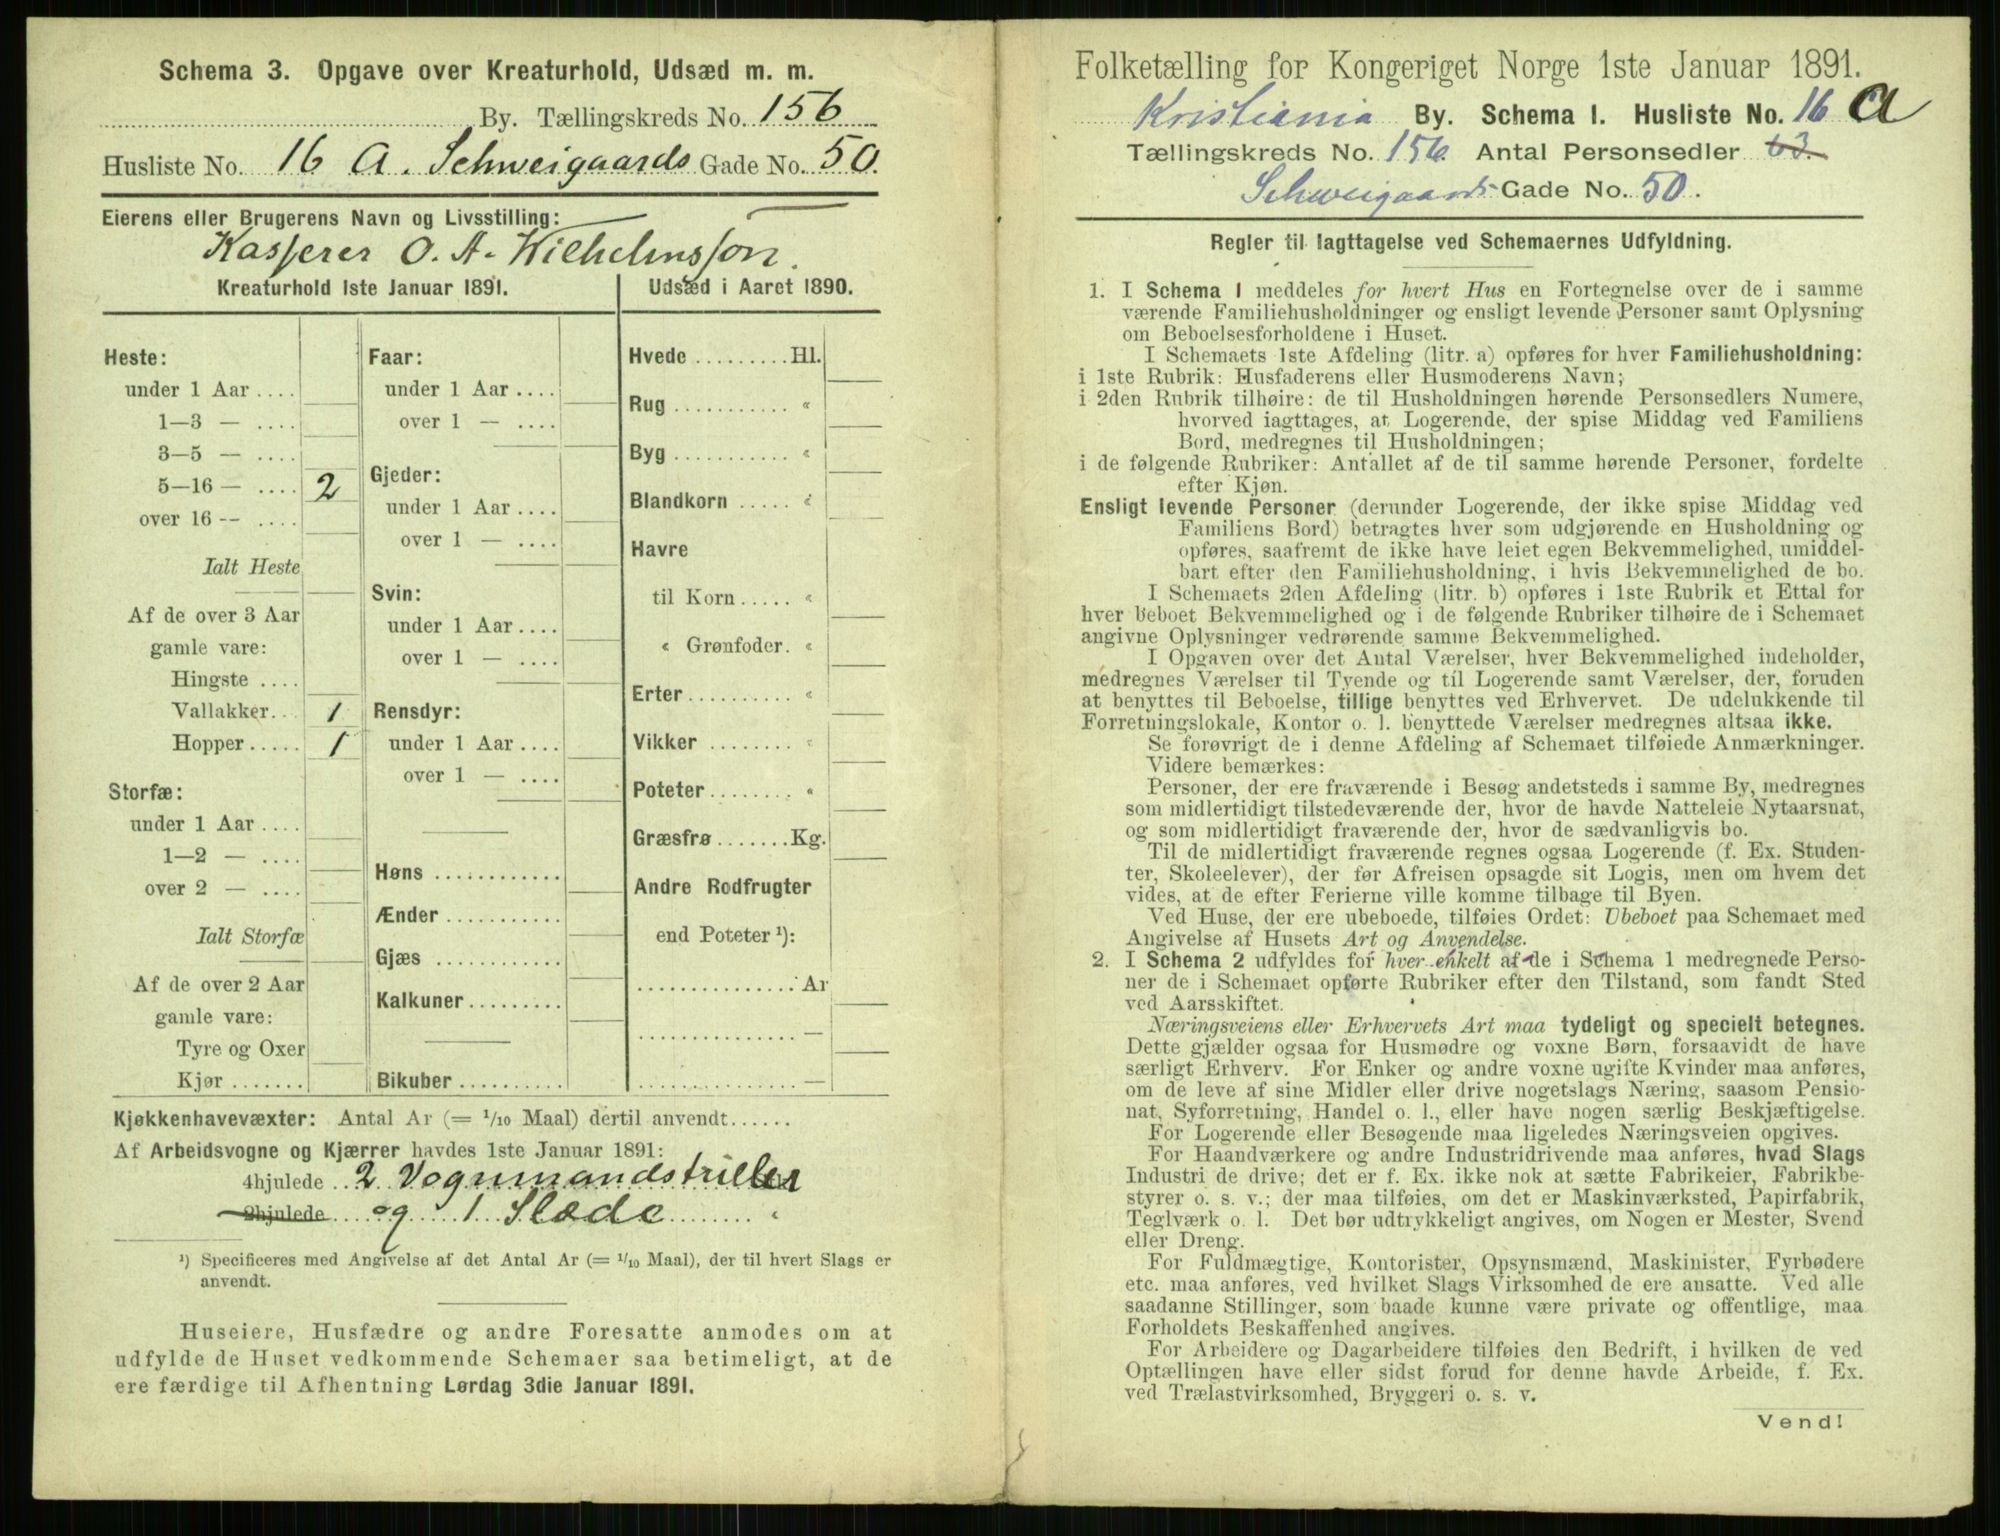 Schema 3. Opgave over Kreaturhold, Udsæd m. m.
By. Tællingskreds No. 156
Husliste No. 16 A. Schweigaards Gade No. 50.
Eierens eller Brugerens Navn og Livsstilling:
Kasserer O. A. Wilhelmsson.
Kreaturhold 1ste Januar 1891.
Heste:
under 1 Aar ....
1—3 — ....
3—5 — ....
5—16 — .... 2
over 16 -- ....
Ialt Heste
Af de over 3 Aar
gamle vare:
Hingste ....
Vallakker.. 1
Hopper..... 1
Storfæ:
under 1 Aar ....
1—2 — ....
over 2 — ....
Ialt Storfæ
Af de over 2 Aar
gamle vare:
Tyre og Oxer
Kjør .......
Faar:
under 1 Aar ....
over 1 — ....
Gjeder:
under 1 Aar ....
over 1 — ....
Svin:
under 1 Aar ....
over 1 — ....
Rensdyr:
under 1 Aar ....
over 1 — ....
Høns ............
Ænder ...........
Gjæs ............
Kalkuner.........
Bikuber ..........
Udsæd i Aaret 1890.
Hvede .........Hl.
Rug ........... «
Byg ........... «
Blandkorn ..... «
Havre
til Korn..... «
« Grønfoder. «
Erter.......... «
Vikker ........ «
Poteter........ «
Græsfrø .......Kg.
Andre Rodfrugter
end Poteter ¹):
............... Ar
............... —
............... —
Kjøkkenhavevæxter: Antal Ar (= 1/10 Maal) dertil anvendt......
Af Arbeidsvogne og Kjærrer havdes 1ste Januar 1891:
4hjulede .. 2 Vognmandstriller
2hjulede .... og 1 Slæde ........ «
¹) Specificeres med Angivelse af det Antal Ar (= 1/10 Maal), der til hvert Slags er
anvendt.
Huseiere, Husfædre og andre Foresatte anmodes om at
udfylde de Huset vedkommende Schemaer saa betimeligt, at de
ere færdige til Afhentning Lørdag 3die Januar 1891.
Folketælling for Kongeriget Norge 1ste Januar 1891.
Kristiania By. Schema I. Husliste No. 16 A
Tællingskreds No. 156. Antal Personsedler 63.
Schweigaards Gade No. 50.
Regler til Iagttagelse ved Schemaernes Udfyldning.
1. I Schema 1 meddeles for hvert Hus en Fortegnelse over de i samme
værende Familiehusholdninger og ensligt levende Personer samt Oplysning
om Beboelsesforholdene i Huset.
I Schemaets 1ste Afdeling (litr. a) opføres for hver Familiehusholdning:
i 1ste Rubrik: Husfaderens eller Husmoderens Navn;
i 2den Rubrik tilhøire: de til Husholdningen hørende Personsedlers Numere,
hvorved iagttages, at Logerende, der spise Middag ved Familiens
Bord, medregnes til Husholdningen;
i de følgende Rubriker: Antallet af de til samme hørende Personer, fordelte
efter Kjøn.
Ensligt levende Personer (derunder Logerende, der ikke spise Middag ved
Familiens Bord) betragtes hver som udgjørende en Husholdning og
opføres, saafremt de ikke have leiet egen Bekvemmelighed, umiddel-
bart efter den Familiehusholdning, i hvis Bekvemmelighed de bo.
I Schemaets 2den Afdeling (litr. b) opføres i 1ste Rubrik et Ettal for
hver beboet Bekvemmelighed og i de følgende Rubriker tilhøire de i Schemaet
angivne Oplysninger vedrørende samme Bekvemmelighed.
I Opgaven over det Antal Værelser, hver Bekvemmelighed indeholder,
medregnes Værelser til Tyende og til Logerende samt Værelser, der, foruden
at benyttes til Beboelse, tillige benyttes ved Erhvervet. De udelukkende til
Forretningslokale, Kontor o. l. benyttede Værelser medregnes altsaa ikke.
Se forøvrigt de i denne Afdeling af Schemaet tilføiede Anmærkninger.
Videre bemærkes:
Personer, der ere fraværende i Besøg andetsteds i samme By, medregnes
som midlertidigt tilstedeværende der, hvor de havde Natteleie Nytaarsnat,
og som midlertidigt fraværende der, hvor de sædvanligvis bo.
Til de midlertidigt fraværende regnes ogsaa Logerende (f. Ex. Studen-
ter, Skoleelever), der før Afreisen opsagde sit Logis, men om hvem det
vides, at de efter Ferierne ville komme tilbage til Byen.
Ved Huse, der ere ubeboede, tilføies Ordet: Ubeboet paa Schemaet med
Angivelse af Husets Art og Anvendelse.
2. I Schema 2 udfyldes for hver enkelt af de i Schema 1 medregnede Perso-
ner de i Schemaet opførte Rubriker efter den Tilstand, som fandt Sted
ved Aarsskiftet.
Næringsveiens eller Erhvervets Art maa tydeligt og specielt betegnes.
Dette gjælder ogsaa for Husmødre og voxne Børn, forsaavidt de have
særligt Erhverv. For Enker og andre voxne ugifte Kvinder maa anføres,
om de leve af sine Midler eller drive nogetslags Næring, saasom Pensio-
nat, Syforretning, Handel o. l., eller have nogen særlig Beskjæftigelse.
For Logerende eller Besøgende maa ligeledes Næringsveien opgives.
For Haandværkere og andre Industridrivende maa anføres, hvad Slags
Industri de drive; det er f. Ex. ikke nok at sætte Fabrikeier, Fabrikbe-
styrer o. s. v.; der maa tilføies, om det er Maskinværksted, Papirfabrik,
Teglværk o. l. Det bør udtrykkeligt angives, om Nogen er Mester, Svend
eller Dreng.
For Fuldmægtige, Kontorister, Opsynsmænd, Maskinister, Fyrbødere
etc. maa anføres, ved hvilket Slags Virksomhed de ere ansatte. Ved alle
saadanne Stillinger, som baade kunne være private og offentlige, maa
Forholdets Beskaffenhed angives.
For Arbeidere og Dagarbeidere tilføies den Bedrift, i hvilken de ved
Optællingen have eller sidst forud for denne havde Arbeide, f. Ex.
ved Trælastvirksomhed, Bryggeri o. s. v.
Vend!